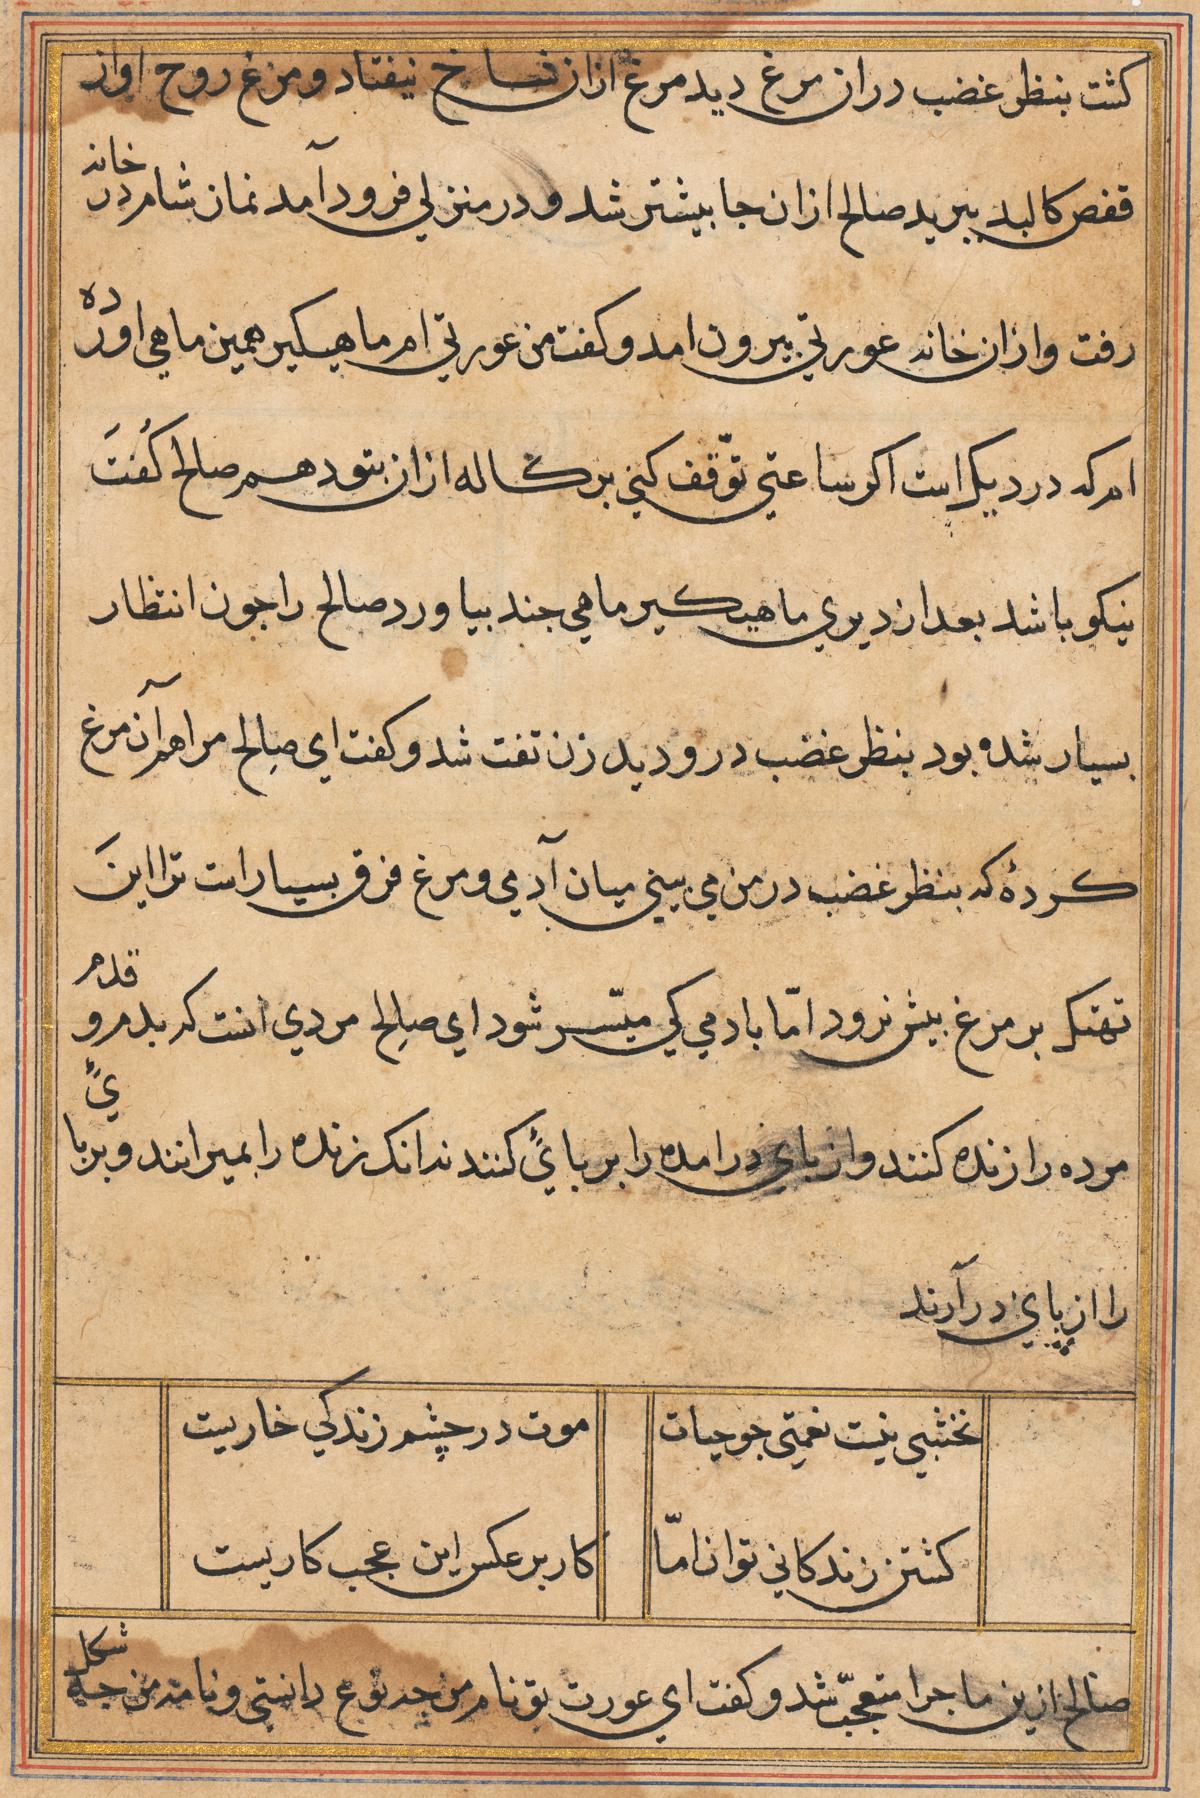 کشت بنظر غضب دران مرغ دید مرغ ازان شاخ نیفتاد و مرغ روح او از
قفص کالبد ببرید صالح ازان جا بیشتر شد و در منزلی فرود آمد نماز شام در خانه
رفت و ازان خانه عورتی بیرون امد و کفت من عورتی ام ماهیکیر همین ماهی اورده
ام که در دیک است اکر ساعتی توّقف کنی برکاله ازان بتو دهم صالح کفت
نیکو باشد بعد از دیری ماهیکیر ماهی جند بیاورد صالح را جون انتظار
بسیار شده بود بنظر غضب درو دید زن تفت شد و کفت ای صالح مرا هم آن مرغ
کردهٔ که بنظر غضب در من می بینی میان آدمی و مرغ فرق بسیار است ترا این
تهتک بر مرغ بیش نرود امّا بادمی کی میسّر شود ای صالح مردی انست که بدم و قدم
مرده را زنده کنند و از بای درامده را بر بائ کنند ندانک زنده را بمیرانند و بر بائ
را از پای درآرند
نخشبی نیست نعمتی جو حیات
موت در چشم زندکی خاریست
کشتن زندکانی توان امّا
کار بر عکس این عجب کاریست
صالح ازین ماجرا متعجّب شد و کفت ای عورت تو نام من جه نوع دانستی و نامه من جه شکل